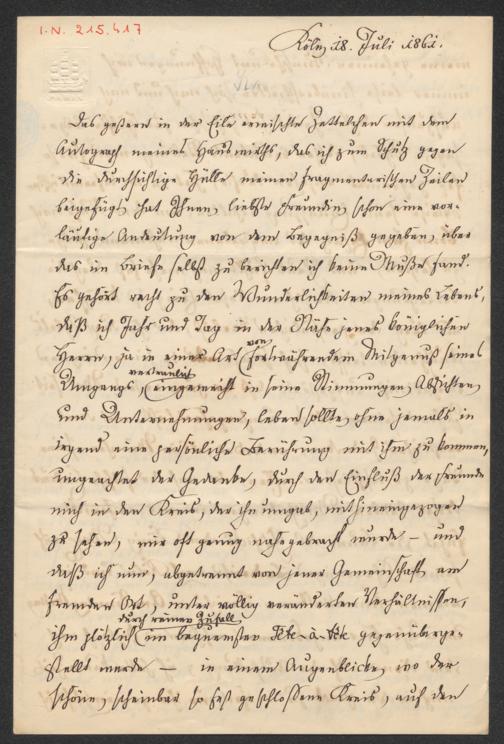 I.N. 215.417
Köln, 18. Juli 1861.
Das gestern in der Eile erwischte Zettelchen mit dem
Autograph meines Hauswirths, das ich zum Schutz gegen
die durchsichtige Hülle meinen fragmentarischen Zeilen
beigefügt, hat Ihnen, liebste Freundin, schon eine vor-
läufige Andeutung von dem Begegniß gegeben, über
das im Briefe selbst zu berichten ich keine Muße fand.
Es gehört recht zu den Wunderlichkeiten meines Lebens,
daß ich Jahr und Tag in der Nähe jenes königlichen
Herrn, ja in einer Art von fortwährendem Mitgenuß seines
Umgangs, vertraulich eingeweiht in seine Stimmungen, Absichten
und Unternehmungen, leben sollte, ohne jemals in
irgend eine persönliche Berührung mit ihm zu kommen,
ungeachtet der Gedanke, durch den Einfluß der Freunde
mich in den Kreis, der ihn umgab, mithineingezogen
zu sehen, mir oft genug nahegebracht wurde — und
daß ich nun, abgetrennt von jener Gemeinschaft, am
fremden Ort, unter völlig veränderten Verhältnissen,
ihm plötzlich durch reinen Zufall im bequemsten Tête-à-tête gegenüberge-
stellt werde — in einem Augenblicke, wo der
schöne, scheinbar so fest geschlossene Kreis, auf den